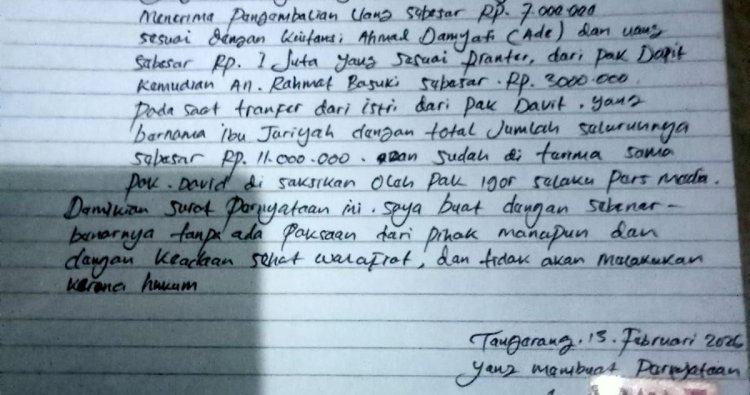 Menerima Pengembalian Uang sebesar Rp. 7.000.000
sesuai dengan kwitansi Ahmad Damyati (Ade) dan uang
sebesar Rp. 1 Juta yang sesuai Tranfer, dari pak Dapit
Kemudian An. Rahmat Basuki sebesar . Rp. 3000.000
Pada saat tranfer dari istri dari pak Davit . yang
bernama ibu Jariyah dengan total Jumlah seluruhnya
sebesar Rp. 11.000.000 . dan sudah di terima sama
pak . David di saksikan oleh pak igor selaku Pers media .
Demikian surat Pernyataan ini . saya buat dengan sebenar-
benarnya tanpa ada Paksaan dari pihak manapun dan
dengan keadaan sehat walafiat, dan tidak akan melakukan
hukum
Tangerang . 15 . Februari 2026
yang membuat Pernyataan